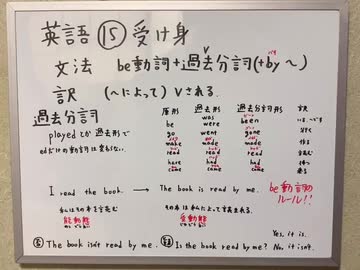 英語 ⑮ 受け身
文法 be動詞+過去分詞(+by ～)
訳 (～によって) Vされる.
過去分詞
playedとか過去形で
原形 過去形 過去分詞形 訳
be was were been
go went gone 行く
make made made 作る
read read read 読む
have had had 持つ
come came come 来る
I read the book. → The book is read by me.
be動詞の
ルール!!
私はその本を読む
その本は私によって読まれる.
能動態
受動態
The book isn't read by me.
Is the book read by me?
Yes, it is.
No, it isn't.